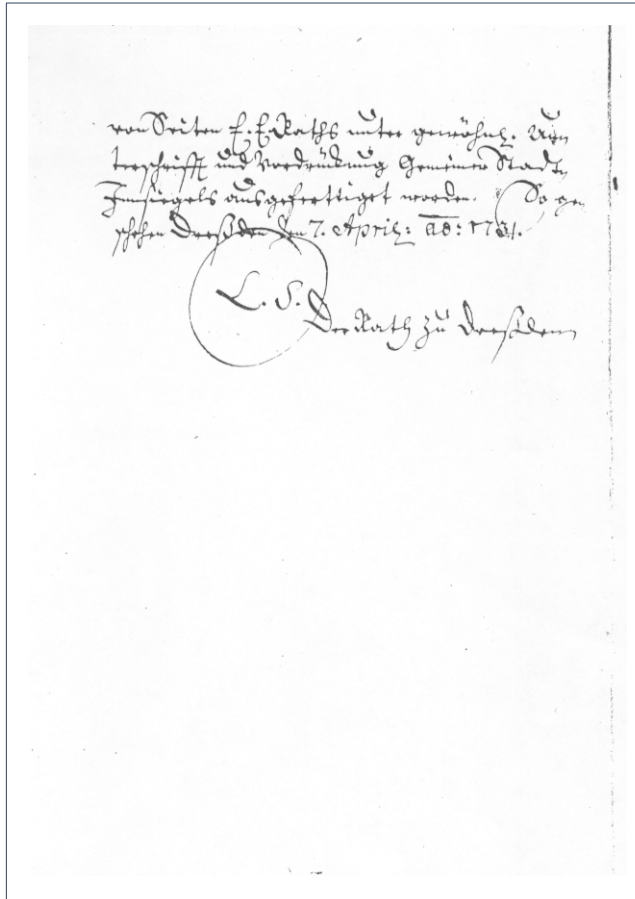 von Seiten E. E. Raths unter gewöhnl. Un
terschrifft und Vordrückung Gemeiner Stadt
Innsiegels ausgeferttiget worden. So ge
schehen Dreßden den 7. April: ao: 1731.
L. S.
Der Rath zu Dreßden